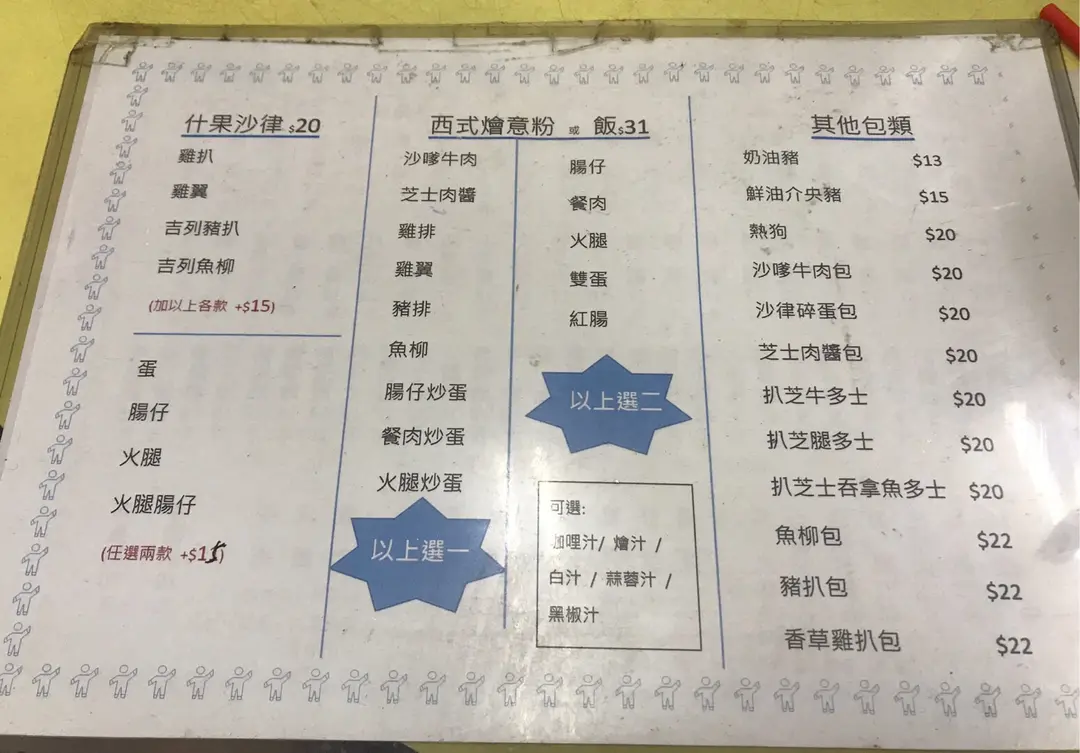 什果沙律 $20
雞扒
雞翼
吉列豬扒
吉列魚柳
(加以上各款 +$15)
蛋
腸仔
火腿
火腿腸仔
(任選兩款 +$15)
西式燴意粉 或 飯$31
沙嗲牛肉
芝士肉醬
雞排
雞翼
豬排
魚柳
腸仔炒蛋
餐肉炒蛋
火腿炒蛋
以上選一
腸仔
餐肉
火腿
雙蛋
紅腸
以上選二
可選:
咖哩汁/ 燴汁 /
白汁 / 蒜蓉汁 /
黑椒汁
其他包類
奶油豬 $13
鮮油介央豬 $15
熱狗 $20
沙嗲牛肉包 $20
沙律碎蛋包 $20
芝士肉醬包 $20
扒芝牛多士 $20
扒芝腿多士 $20
扒芝士吞拿魚多士 $20
魚柳包 $22
豬扒包 $22
香草雞扒包 $22